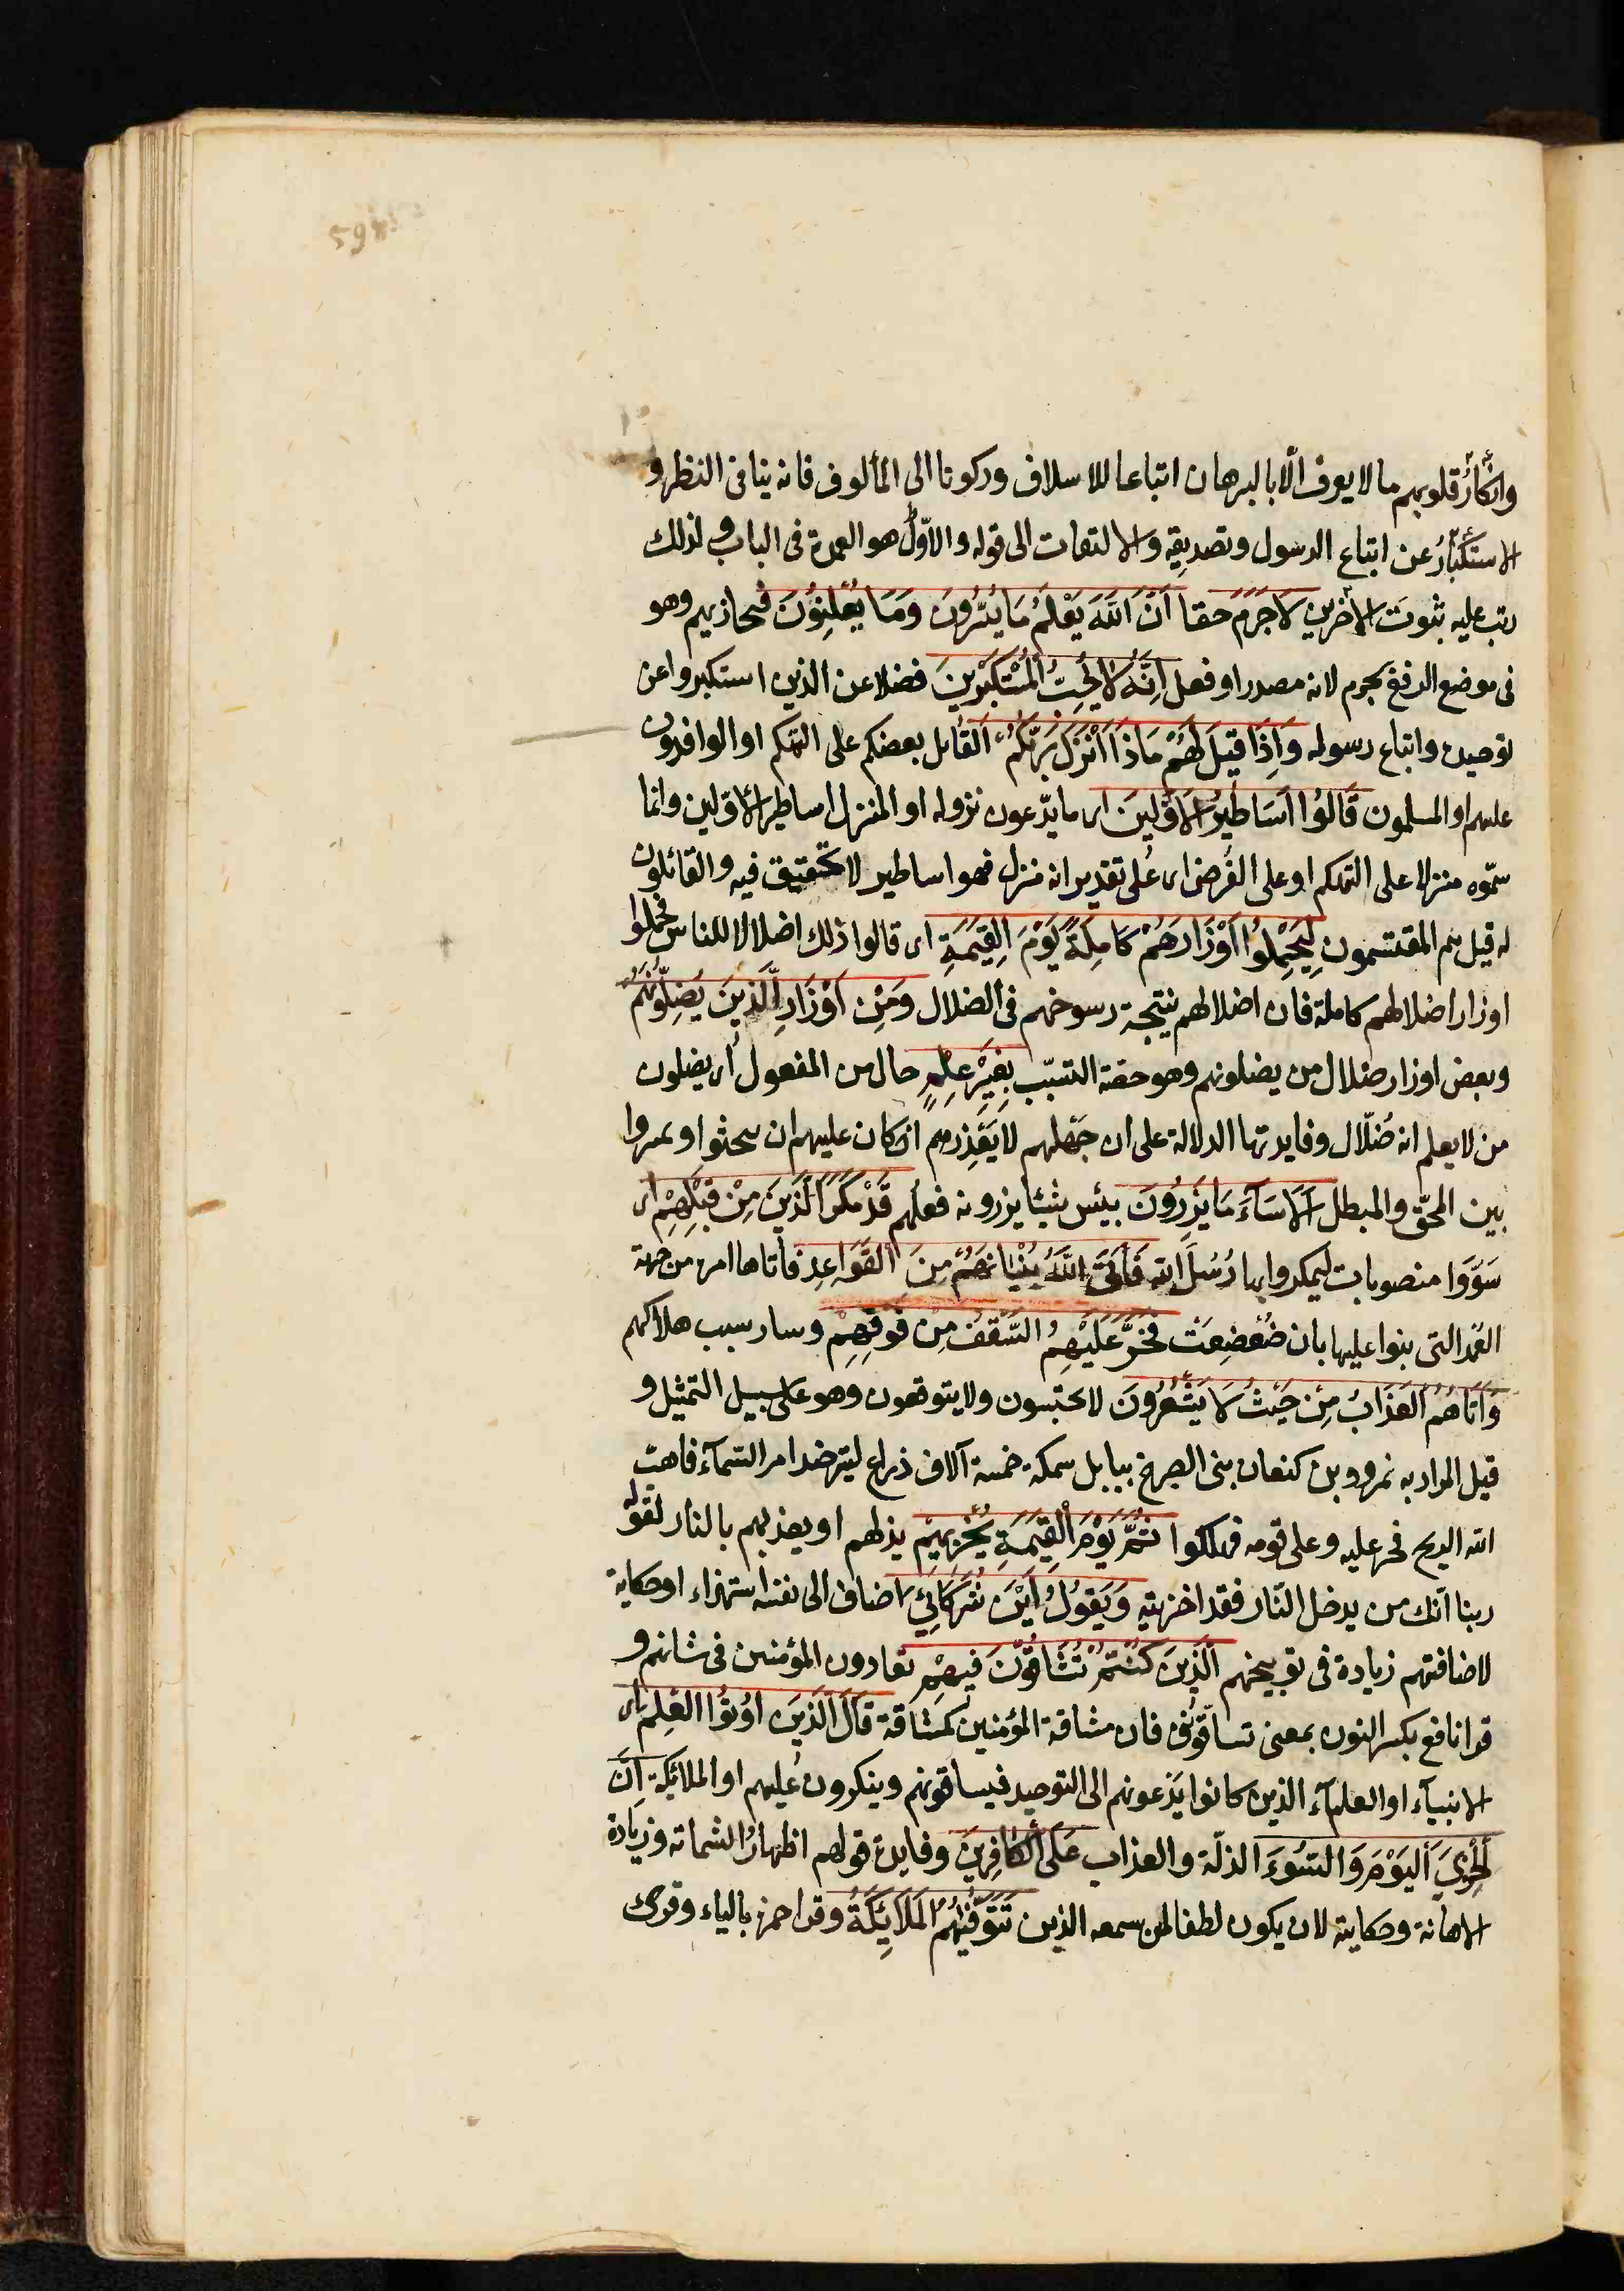 وانكارُ قلوبهم ما لا يعرف الّا بالبرهان اتباعا للاسلاف وركونا الى المألوف فانه ينافى النظر و
الاستكبارُ عن اتباع الرسول وتصديقه والالتفات الى قوله والاوّل هو العمدة فى الباب ولذلك
رتب عليه ثبوتَ الأخرين لَاجَرَمَ حقا اَنَّ اللهَ يَعْلَمُ مَا يُسِرُّونَ وَمَا يُعْلِنُونَ فيجازيهم وهو
فى موضع الرفع بجرم لانه مصدر او فعل اِنَّهُ لَا يُحِبُّ الْمُسْتَكْبِرِينَ فضلا عن الذين استكبروا عن
توحيده واتباع رسوله وَاِذَا قِيلَ لَهُمْ مَاذَا اَنْزَلَ رَبُّكُمْ القائل بعضكم على التهكم او الوافدون
عليهم او المسلمون قَالُوا اَسَاطِيرُ الْاَوَّلِينَ اى ما يدّعون نزوله او المنزل اساطير الاوّلين وانما
سمّوه منزلا على التهكم او على الفرض اى على تقدير انه منزل فهو اساطير لا تحقيق فيه والقائلون
له قيل هم المقتسمون لِيَحْمِلُوا اَوْزَارَهُمْ كَامِلَةً يَوْمَ الْقِيمَةِ اى قالوا ذلك اضلالا للناس فحملوا
اوزار اضلالهم كاملة فان اضلالهم نتيجة رسوخهم فى الضلال وَمِنْ اَوْزَارِ الَّذِينَ يُضِلُّونَهُمْ
وبعض اوزار ضلال من يضلونهم وهو حصة التسبّب بِغَيْرِ عِلْمٍ حال من المفعول اى يضلون
من لا يعلم انه ضُلّال وفايدتها الدلالة على ان جهلهم لا يَعْذِرهم اذ كان عليهم ان يبحثوا و يميزوا
بين المحقّ والمبطل اَلَا سَآءَ مَا يَزِرُونَ بيئس شيئا يزرونه فعلهم قَدْ مَكَرَ الَّذِينَ مِنْ قَبْلِهِمْ اى
سَوَّوا منصوبات ليمكروا بها رُسُلَ الله فَاَتَى اللهُ بُنْيَانَهُمْ مِنَ الْقَوَاعِدِ فأتاها امره من جهة
العُمد التى بنوا عليها بان ضُعْضِعَتْ فَخَرَّ عَلَيْهِمُ السَّقْفُ مِنْ فَوْقِهِمْ وسار سبب هلاكهم
وَاَتَاهُمُ الْعَذَابُ مِنْ حَيْثُ لَا يَشْعُرُونَ لا يحتسبون ولا يتوقعون وهو على سبيل التمثيل و
قيل المراد به نمرود بن كنعان بنى الصرح ببابل سمكه خمسة آلاف ذراع ليترصد امر السّمآء فاهبّ
الله الريح فخر عليه وعلى قومه فهلكوا ثُمَّ يَوْمَ الْقِيمَةِ يُخْزِيهِمْ يذلهم او يعذبهم بالنار لقوله
ربنا انّك من يدخل النّار فقد اخزيته وَيَقُولُ اَيْنَ شُرَكَائِيَ اضاف الى نفسه استهزاء او حكاية
لاضافتهم زيادة فى توبيخهم الَّذِينَ كُنْتُمْ تُشَاقُّونَ فِيهِمْ تعادون المؤمنين فى شانهم و
قرا نافع بكسر النون بمعنى تساقّونى فان مشاقة المؤمنين كمشاقة قَالَ الَّذِينَ اُوتُوا الْعِلْمَ اى
الانبيآء او العلمآء الذين كانوا يَدْعونهم الى التوحيد فيساقونهم وينكرون عليهم او الملائكة اِنَّ
الْخِزْيَ الْيَوْمَ وَالسُّوءَ الذلّة والعذاب عَلَى الْكَافِرِينَ وفايدة قولهم اظهارُ الشماتة وزيادة
الاهانة وحكايته لان يكون لطفا لمن سمعه الذين تَتَوَفّيهُمُ الْمَلَائِكَةُ وقرا حمزة بالياء وقرئ